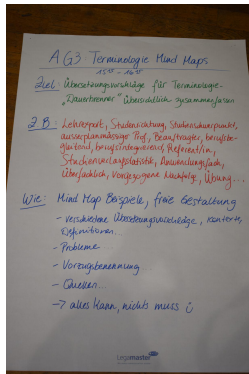 AG3: Terminologie Mind Maps
15¹⁵ – 16¹⁵
Ziel: Übersetzungsvorschläge für Terminologie-
"Dauerbrenner" übersichtlich zusammenfassen
z.B.: Lehrexport, Studienrichtung, Studienschwerpunkt,
ausserplanmässige Prof, Beauftragter, berufsbe-
gleitend, berufsintegrierend, Referent/in,
Studienverlaufsstatistik, Anwendungsfach,
Überfachlich, Vorgezogene Nachfolge, Übung...
Wie: Mind Map Beispiele, freie Gestaltung
- verschiedene Übersetzungsvorschläge, Kontexte,
Definitionen...
- Probleme...
- Vorzugsbenennung
- Quellen...
→ alles kann, nichts muss ☺
Legamaster